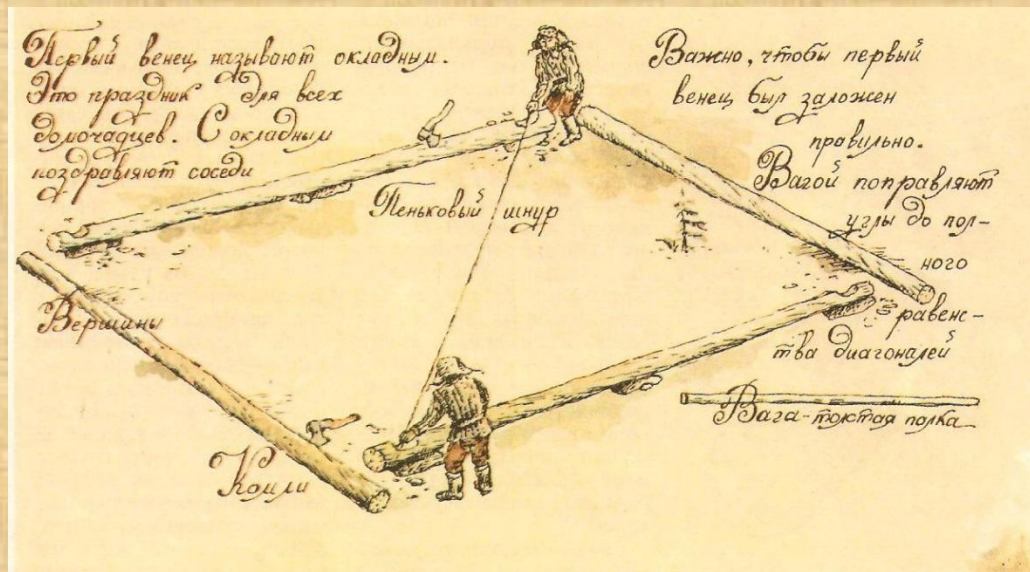 Первый венец называют окладным.
Это праздник для всех
домочадцев. С окладным
поздравляют соседи
Важно, чтобы первый
венец был заложен
правильно.
Вагой поправляют
углы до пол-
ного
равенс-
тва диагоналей
Пеньковый шнур
Вершины
Комли
Вага-толстая палка